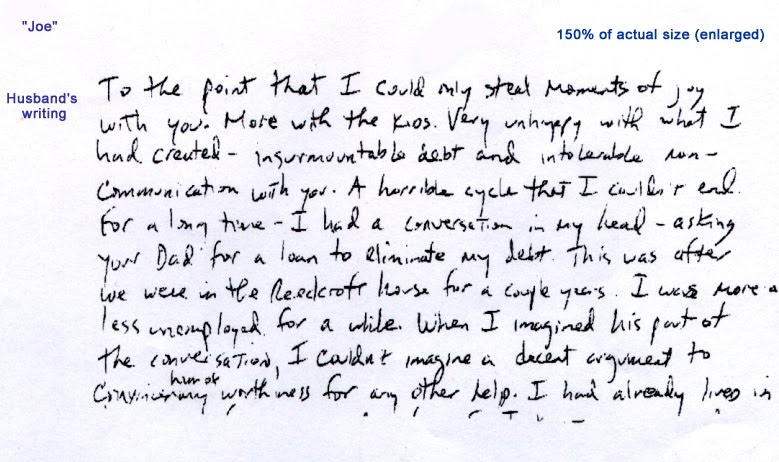 "Joe"
150% of actual size (enlarged)
Husband's
writing
To the point that I could only steal moments of joy
with you. More with the kids. Very unhappy with what I
had created - insurmountable debt and intolerable non-
communication with you. A horrible cycle that I couldn't end.
For a long time - I had a conversation in my head - asking
your Dad for a loan to eliminate my debt. This was after
we were in the Reedcroft house for a couple years. I was more o
less unemployed for a while. When I imagined his part of
the conversation, I couldn't imagine a decent argument to
him of
worthiness for any other help. I had already lived in